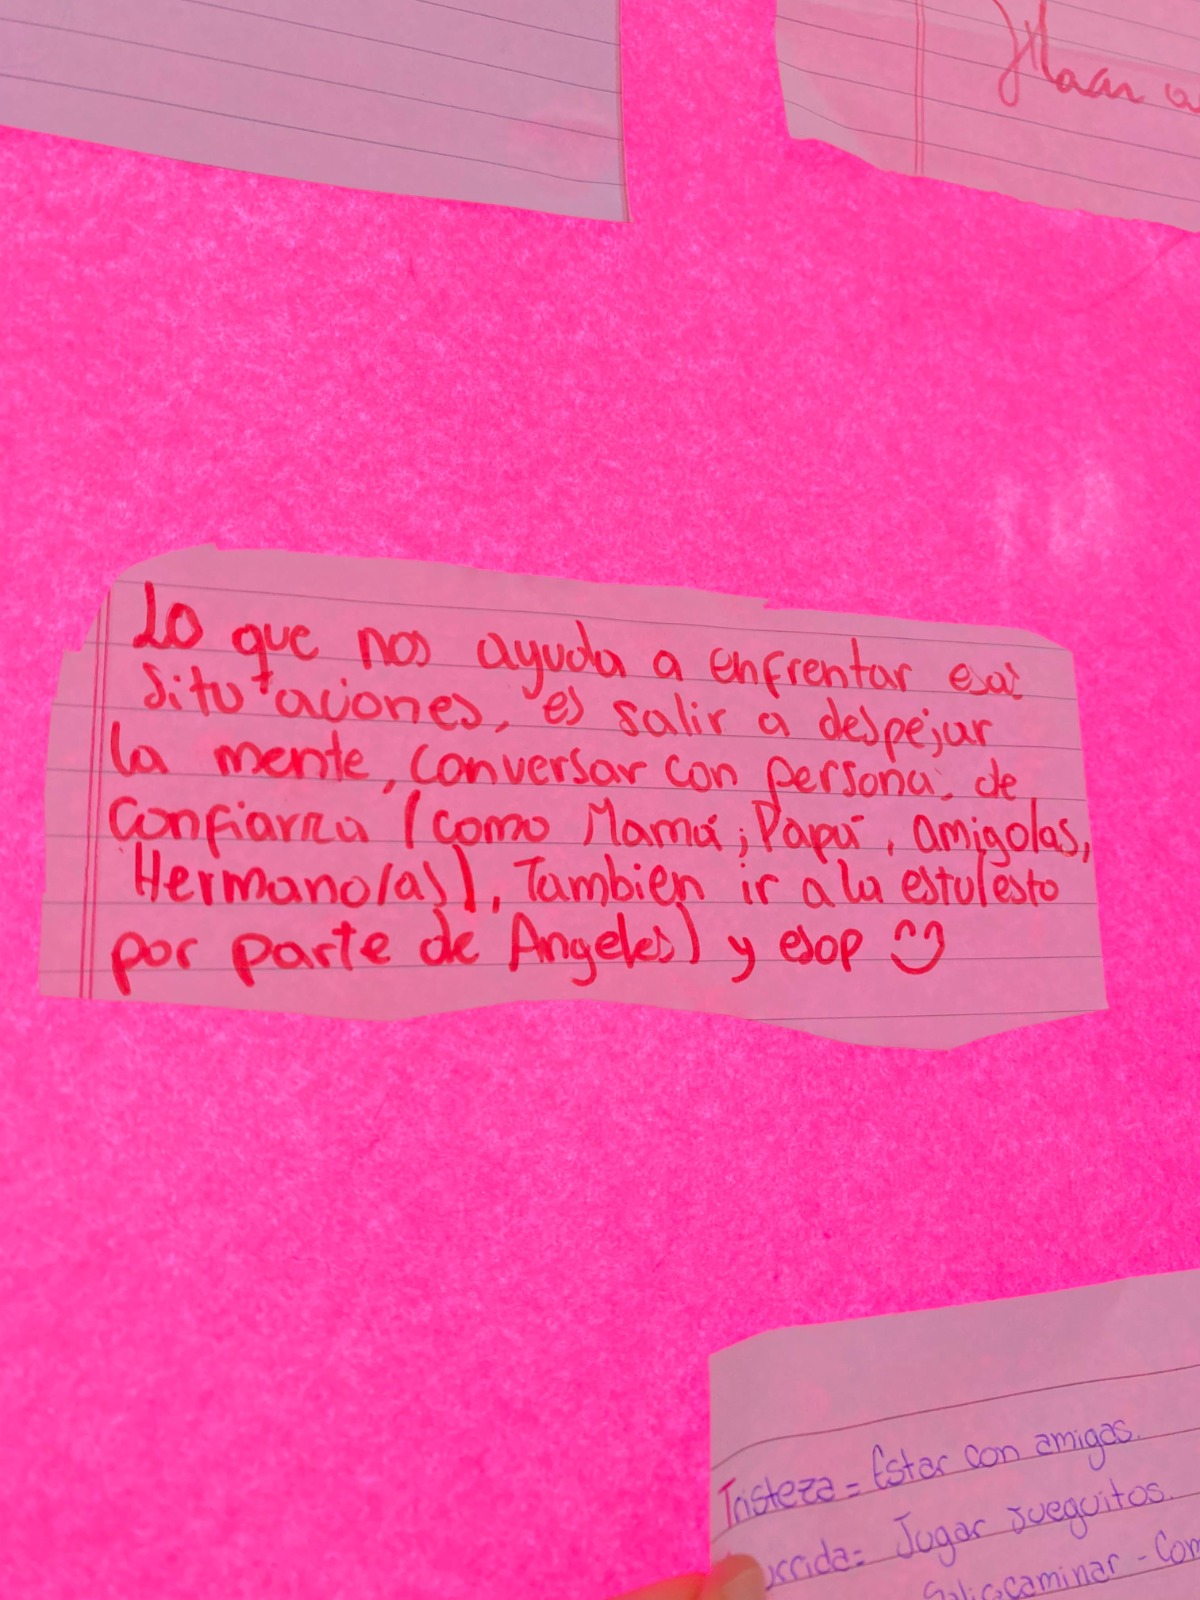 Lo que nos ayuda a enfrentar esas
situaciones, es salir a despejar
la mente, conversar con persona de
confianza (como Mamá, Papá, amigo/as,
Hermano/as)), Tambien ir a la estu(esto
por parte de Angeles) y esop
Tristeza = Estar con amigas.
Jugar jueguitos.
caminar -